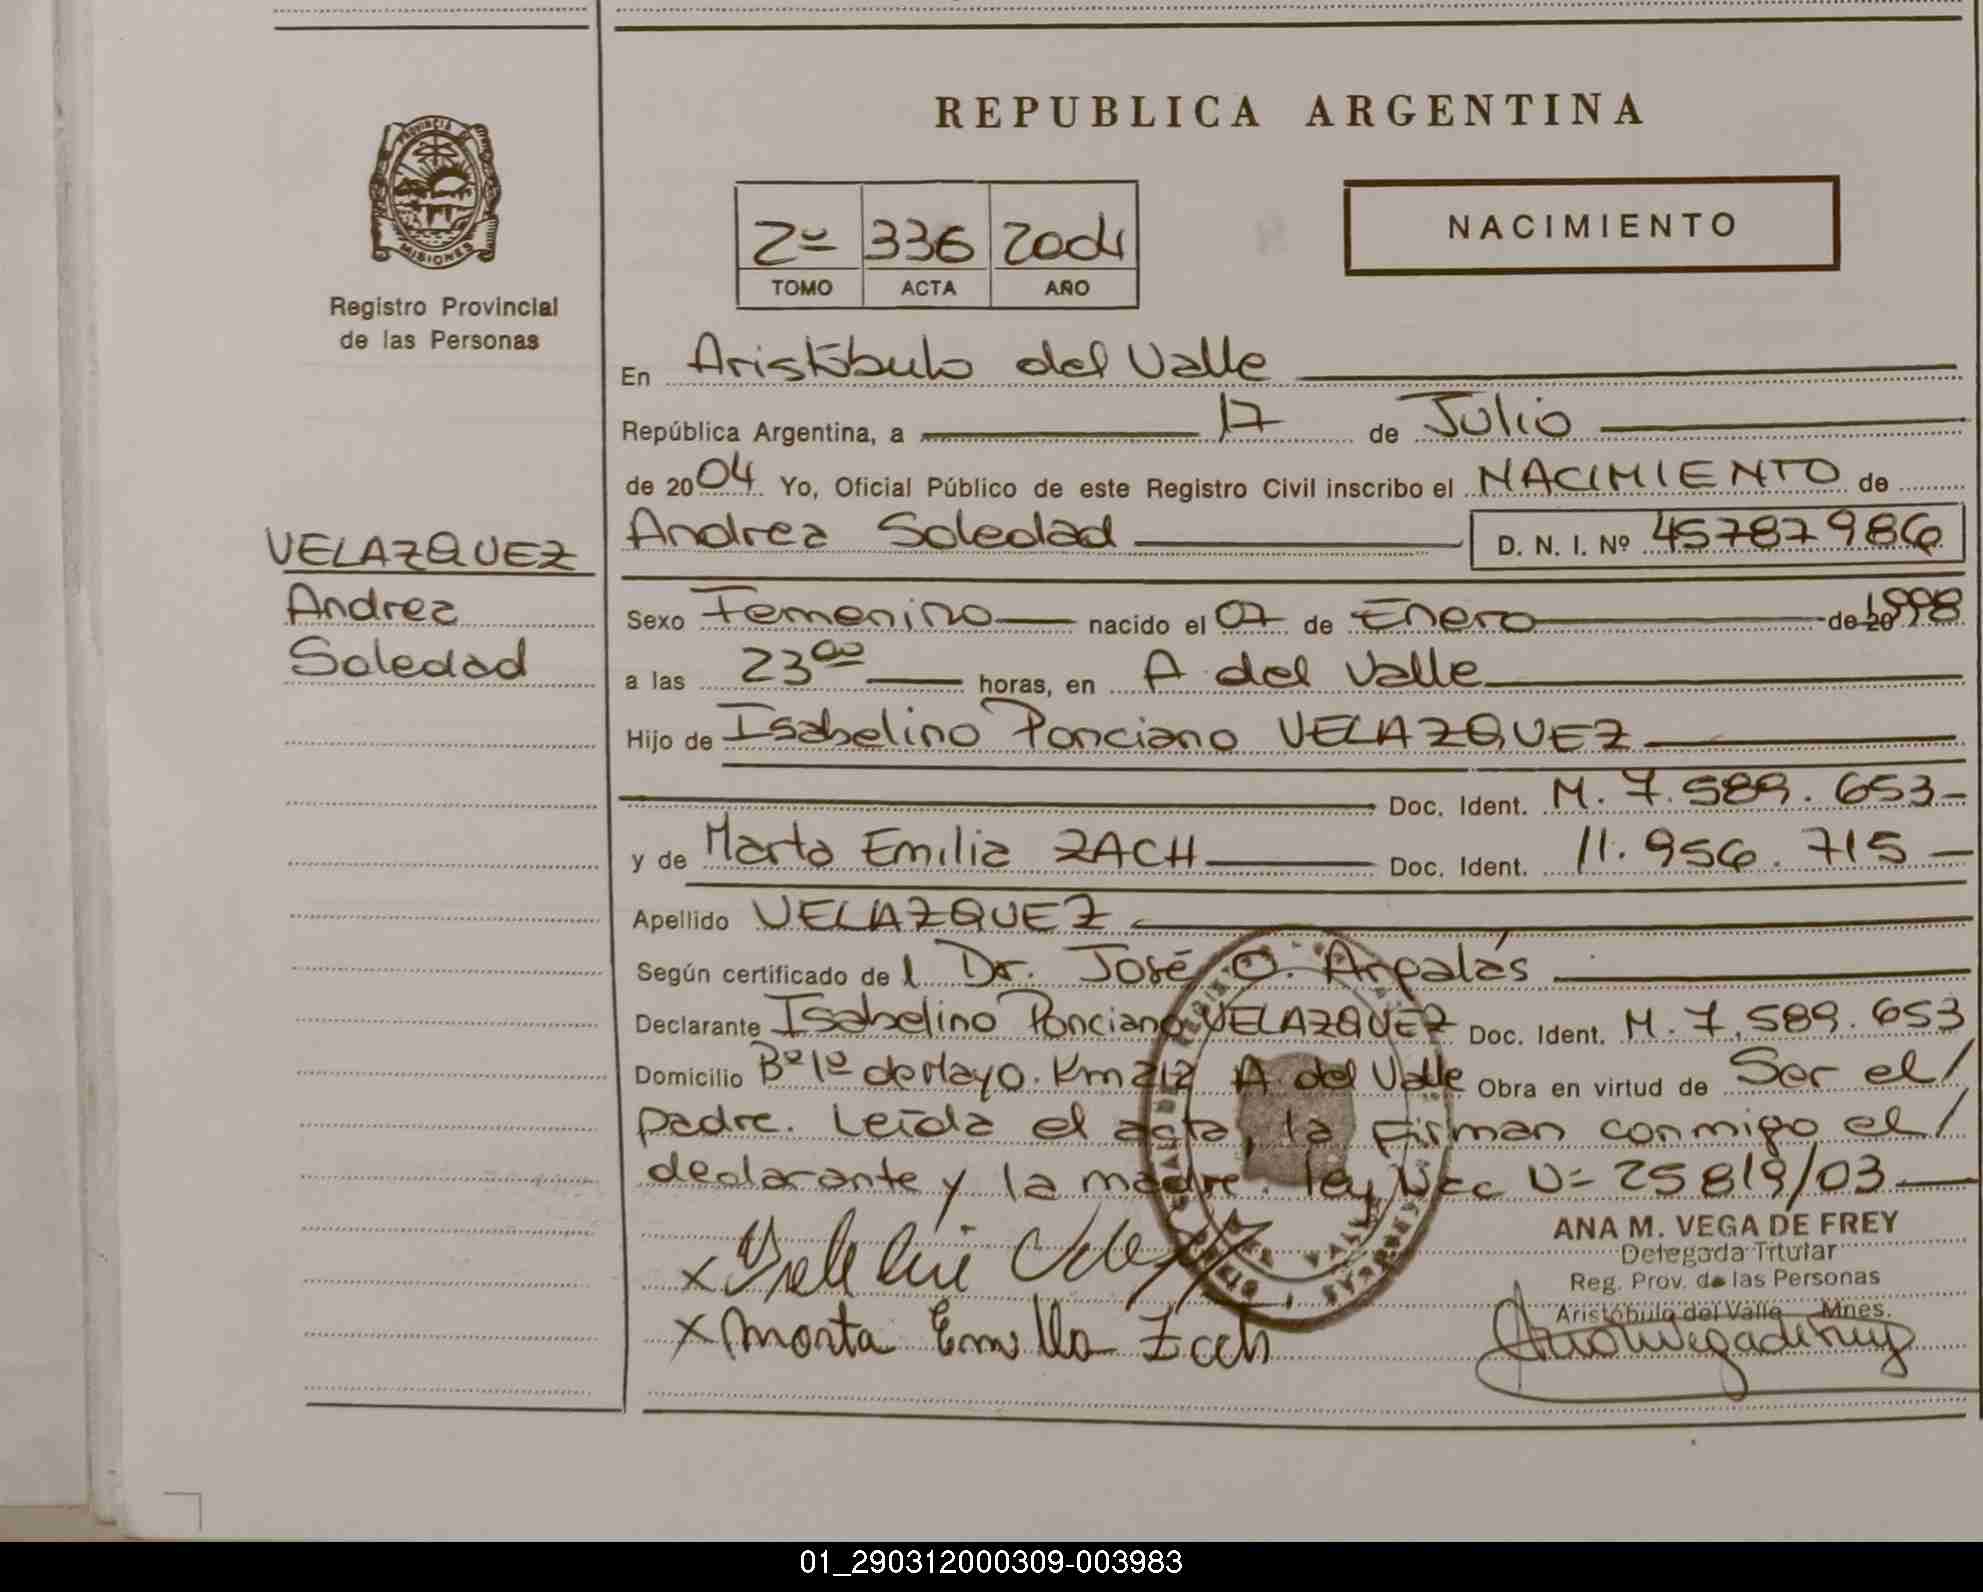 PROVINCIA DE
MISIONES
Registro Provincial
de las Personas
VELAZQUEZ
Andrea
Soledad
REPUBLICA ARGENTINA
2º 336 2004
TOMO ACTA AÑO
NACIMIENTO
En Aristóbulo del Valle
República Argentina, a 17 de Julio
de 2004 Yo, Oficial Público de este Registro Civil inscribo el NACIMIENTO de
Andrea Soledad D. N. I. Nº 45787986
Sexo Femenino nacido el 07 de Enero de 20 1998
a las 23 00 horas, en A del Valle
Hijo de Isabelino Ponciano VELAZQUEZ
Doc. Ident. M. 7.589.653
y de Marta Emilia ZACH Doc. Ident. 11.956.715
Apellido VELAZQUEZ
Según certificado del Dr. José O. Arpalás
Declarante Isabelino Ponciano VELAZQUEZ Doc. Ident. M. 7.589.653
Domicilio Bº 1º de Mayo. Km 212 A. del Valle Obra en virtud de Ser el/
padre. Leída el acta, la firman conmigo el/
declarante y la madre. Ley Nac Nº 25819/03
ANA M. VEGA DE FREY
Delegada Titular
Reg. Prov. de las Personas
Aristóbulo del Valle Mnes.
x Marta Emilia Zach
01_290312000309-003983